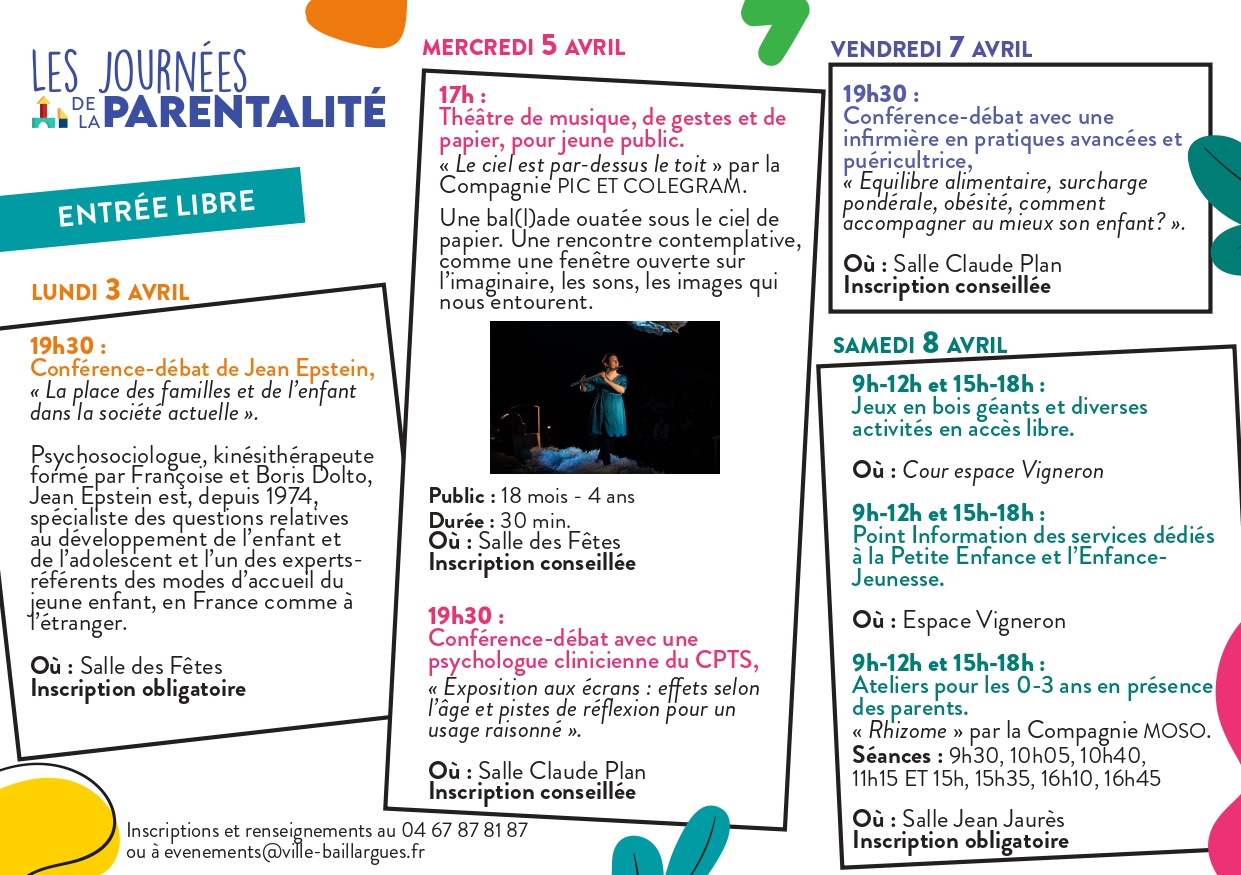 LES JOURNÉES
DE LA PARENTALITÉ
ENTRÉE LIBRE
LUNDI 3 AVRIL
19h30 :
Conférence-débat de Jean Epstein,
« La place des familles et de l'enfant
dans la société actuelle ».
Psychosociologue, kinésithérapeute
formé par Françoise et Boris Dolto,
Jean Epstein est, depuis 1974,
spécialiste des questions relatives
au développement de l'enfant et
de l'adolescent et l'un des experts-
référents des modes d'accueil du
jeune enfant, en France comme à
l'étranger.
Où : Salle des Fêtes
Inscription obligatoire
MERCREDI 5 AVRIL
17h :
Théâtre de musique, de gestes et de
papier, pour jeune public.
« Le ciel est par-dessus le toit » par la
Compagnie PIC ET COLEGRAM.
Une bal(l)ade ouatée sous le ciel de
papier. Une rencontre contemplative,
comme une fenêtre ouverte sur
l'imaginaire, les sons, les images qui
nous entourent.
Public : 18 mois - 4 ans
Durée : 30 min.
Où : Salle des Fêtes
Inscription conseillée
19h30 :
Conférence-débat avec une
psychologue clinicienne du CPTS,
« Exposition aux écrans : effets selon
l'âge et pistes de réflexion pour un
usage raisonné ».
Où : Salle Claude Plan
Inscription conseillée
VENDREDI 7 AVRIL
19h30 :
Conférence-débat avec une
infirmière en pratiques avancées et
puéricultrice,
« Equilibre alimentaire, surcharge
pondérale, obésité, comment
accompagner au mieux son enfant? ».
Où : Salle Claude Plan
Inscription conseillée
SAMEDI 8 AVRIL
9h-12h et 15h-18h :
Jeux en bois géants et diverses
activités en accès libre.
Où : Cour espace Vigneron
9h-12h et 15h-18h :
Point Information des services dédiés
à la Petite Enfance et l'Enfance-
Jeunesse.
Où : Espace Vigneron
9h-12h et 15h-18h :
Ateliers pour les 0-3 ans en présence
des parents.
« Rhizome » par la Compagnie MOSO.
Séances : 9h30, 10h05, 10h40,
11h15 ET 15h, 15h35, 16h10, 16h45
Où : Salle Jean Jaurès
Inscription obligatoire
Inscriptions et renseignements au 04 67 87 81 87
ou à evenements@ville-baillargues.fr